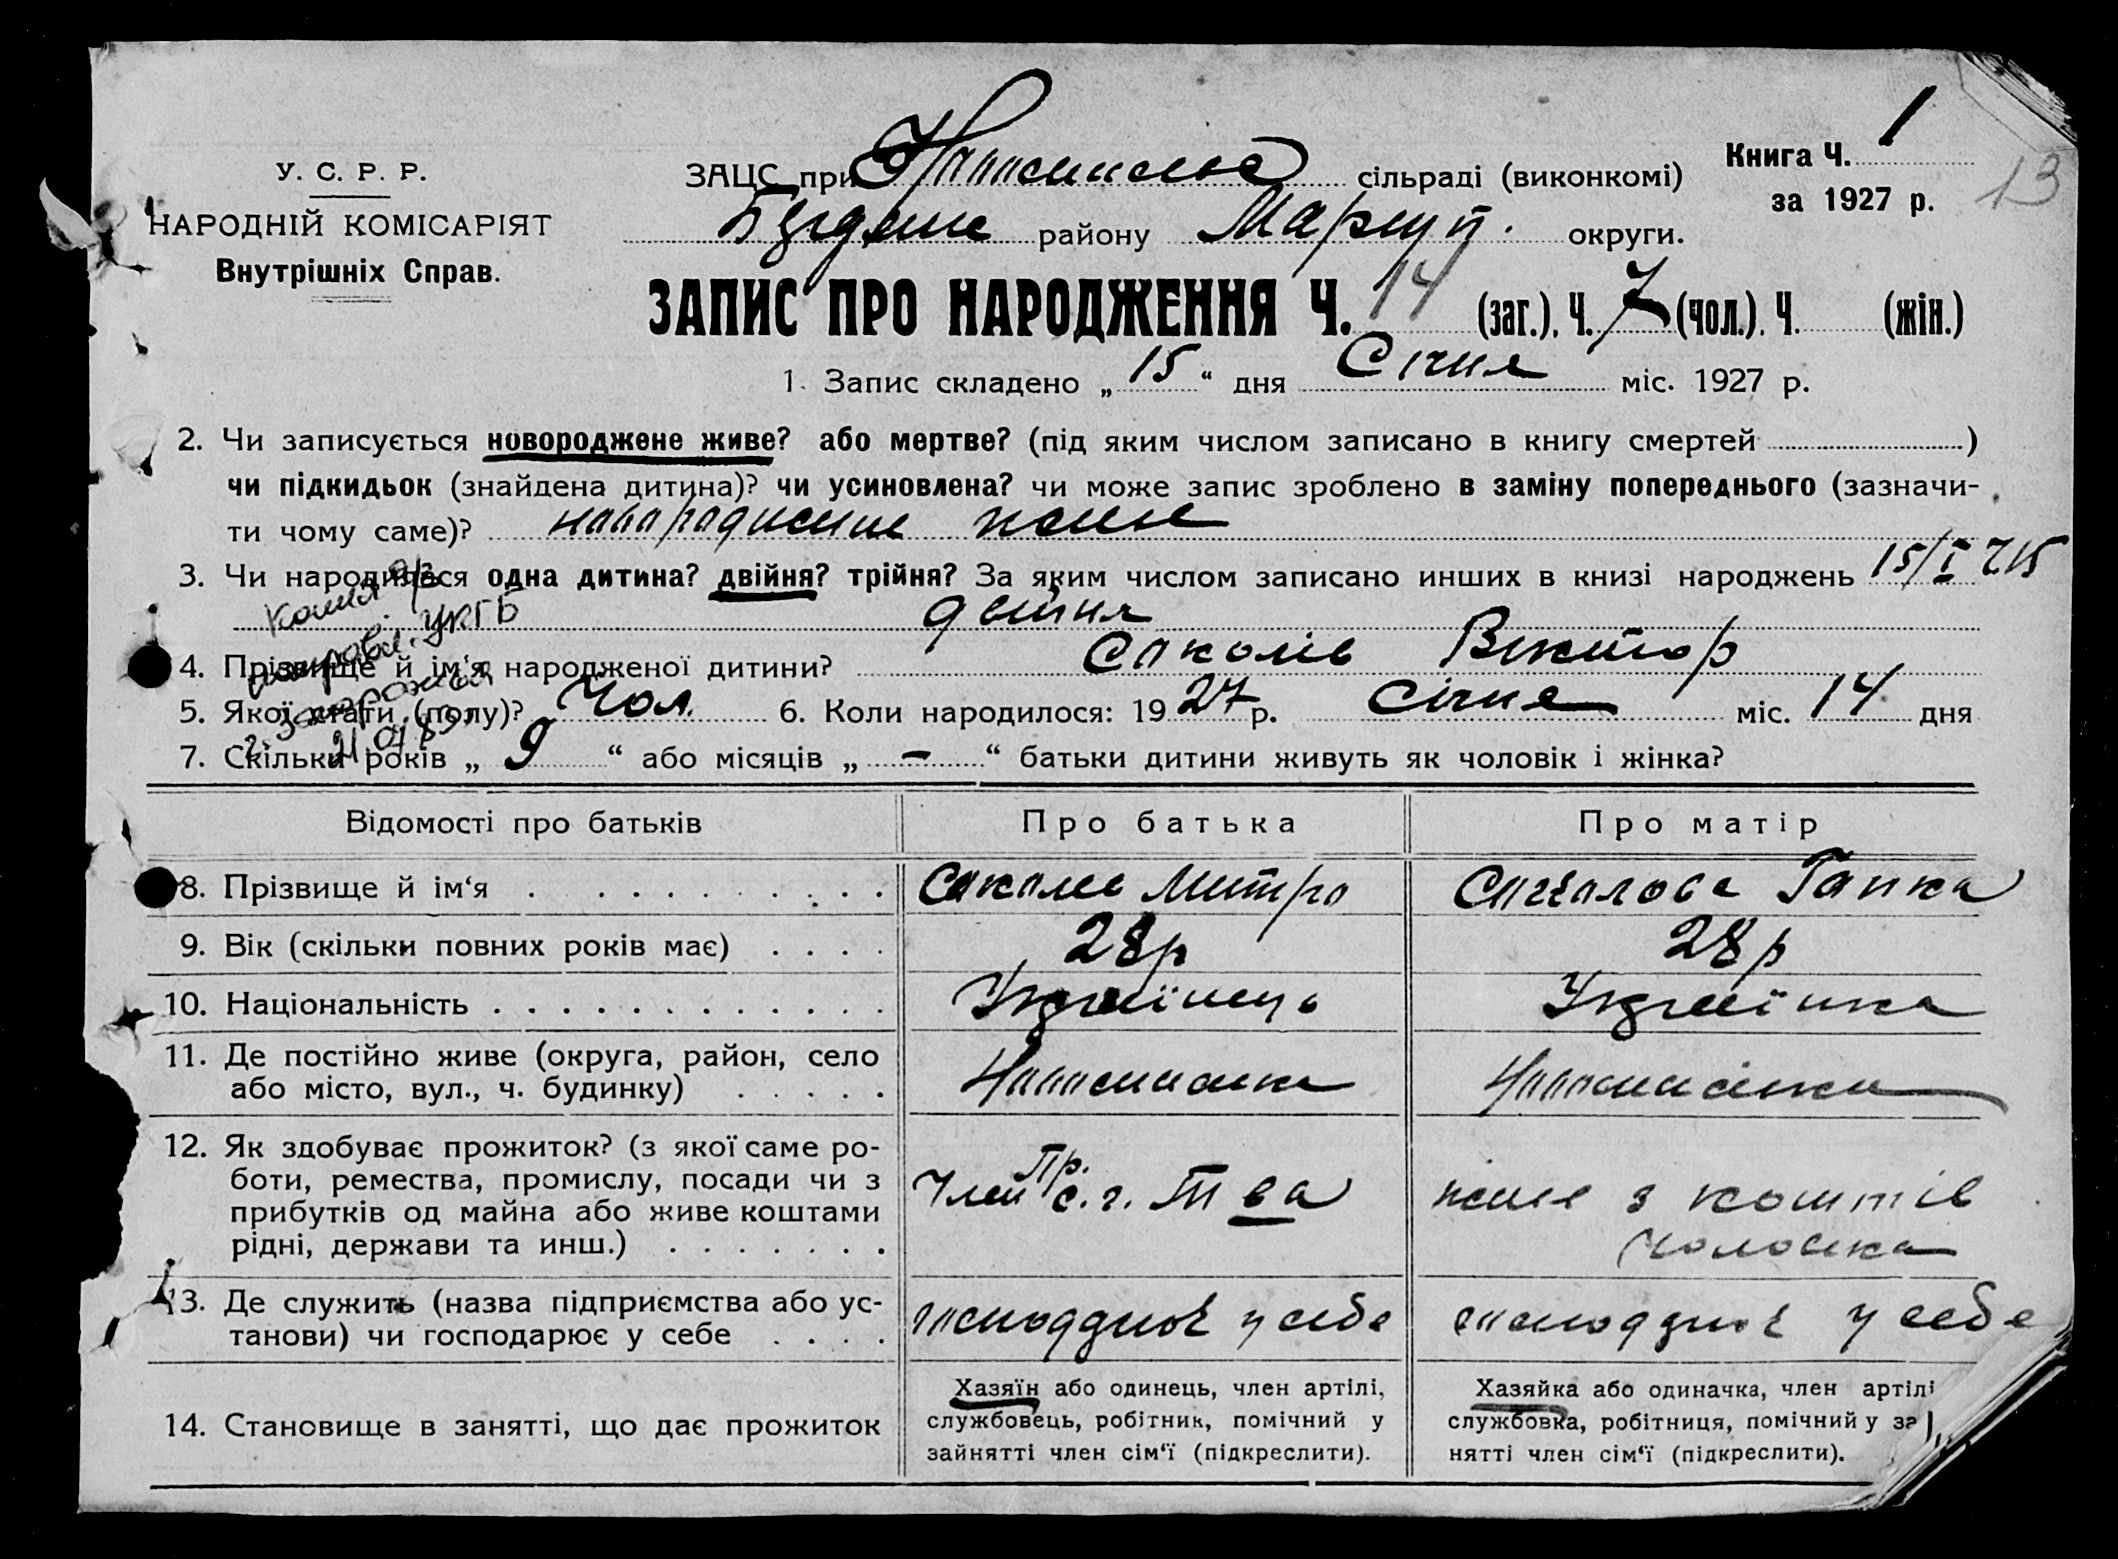 У. С. Р. Р.
НАРОДНІЙ КОМІСАРІЯТ
Внутрішніх Справ.
ЗАЦС при сільраді (виконкомі)
району Маріуп. округи.
Книга Ч. 1
за 1927 р.
13
ЗАПИС ПРО НАРОДЖЕННЯ Ч. 14 (заг.). Ч. 7 (чол.). Ч. (жін.)
1. Запис складено „ 15 “ дня Січня міс. 1927 р.
2. Чи записується новороджене живе? або мертве? (під яким числом записано в книгу смертей )
чи підкидьок (знайдена дитина)? чи усиновлена? чи може запис зроблено в заміну попереднього (зазначи-
ти чому саме)? новородженне живе
3. Чи народилася одна дитина? двійня? трійня? За яким числом записано инших в книзі народжень 15/I Ч15
двійня
4. Прізвище й ім‘я народженої дитини? Соколів Віктор
5. Якої статі (полу)? Чол. 6. Коли народилося: 1927 р. Січня міс. 14 дня
7. Скільки років „ 9 “ або місяців „ – “ батьки дитини живуть як чоловік і жінка?
Відомості про батьків Про батька Про матір
8. Прізвище й ім‘я Соколів Митро Соколова Гапка
9. Вік (скільки повних років має) 28р 28р
10. Національність Українець Українка
11. Де постійно живе (округа, район, село
або місто, вул., ч. будинку)
12. Як здобуває прожиток? (з якої саме ро-
боти, ремества, промислу, посади чи з
прибутків од майна або живе коштами
рідні, держави та инш.)
Член Пр. с. г. Т ва
живе з коштів
чоловіка
13. Де служить (назва підприємства або ус-
танови) чи господарює у себе
господарює у себе господарює у себе
14. Становище в занятті, що дає прожиток
Хазяїн або одинець, член артілі,
службовець, робітник, помічний у
зайнятті член сім‘ї (підкреслити).
Хазяйка або одиначка, член артілі
службовка, робітниця, помічний у за
нятті член сім‘ї (підкреслити).